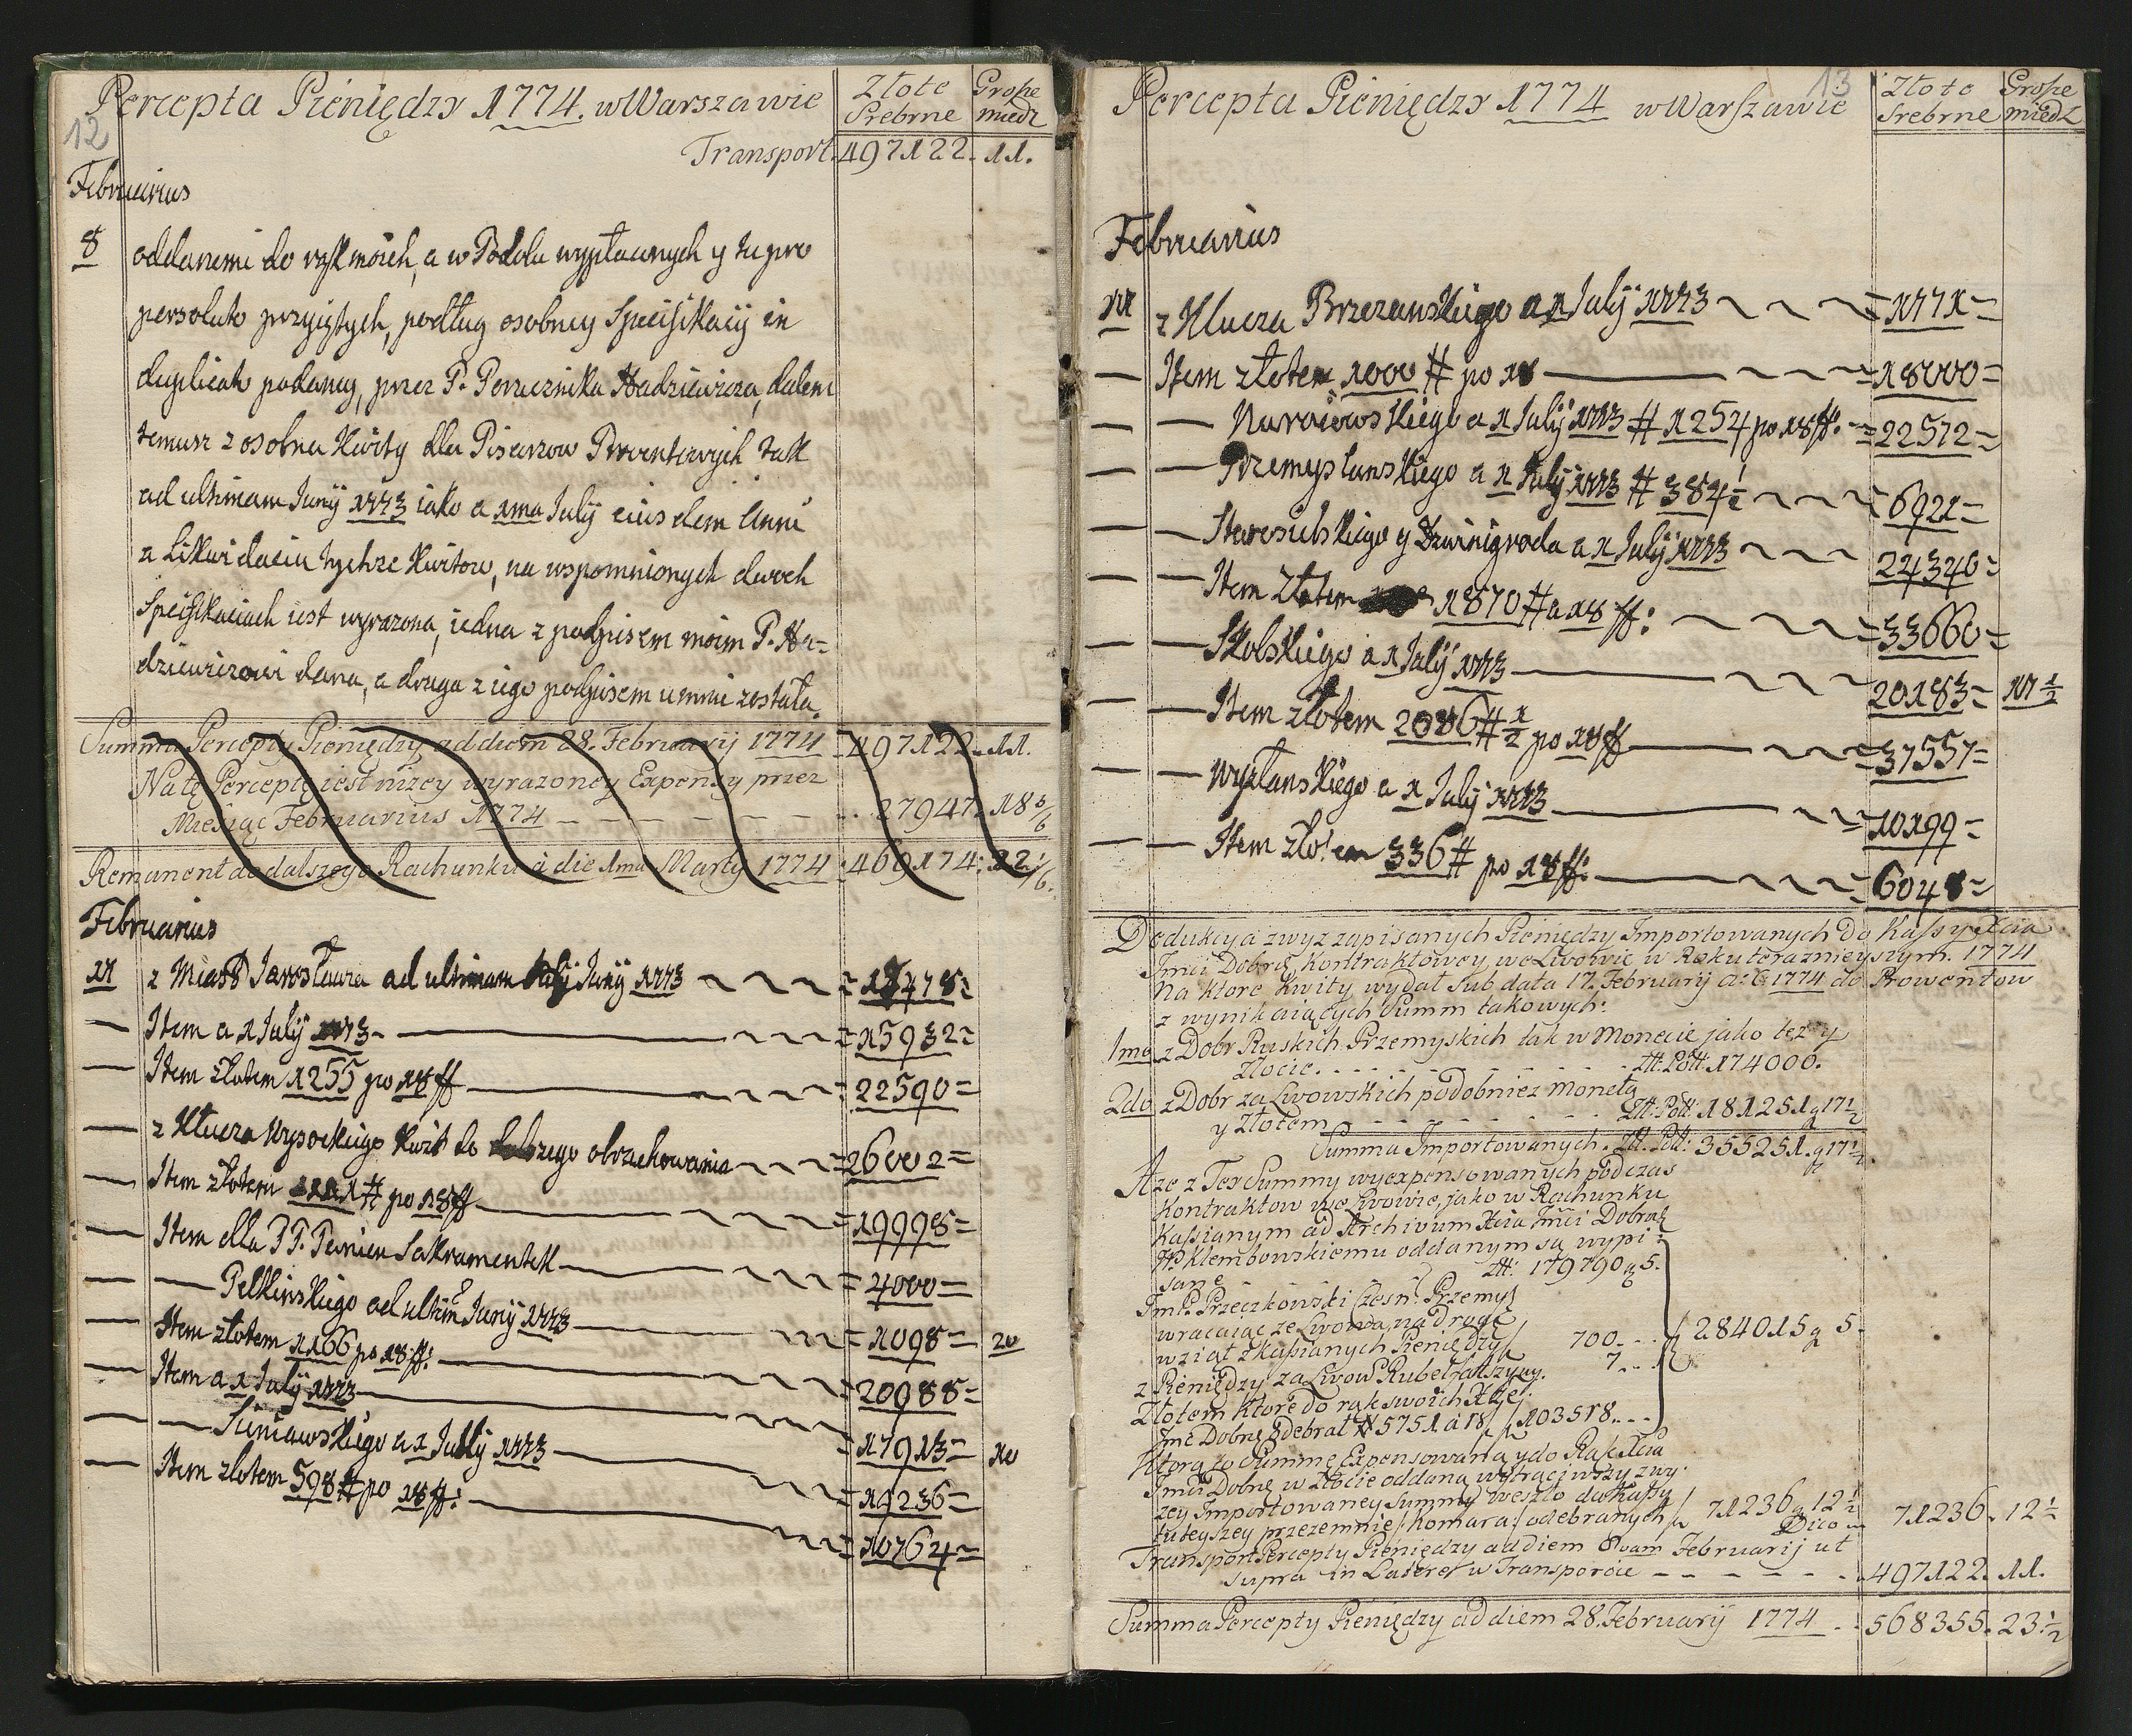 12
Percepta Pieniędzy 1774. w Warszawie
Złote Srebrne
Grosze miedz
Transport. 497122. 11.
Februarius
8 oddanemi do rąk moich, a w Podolu wypłaconych y tu pro
persoluto przyiętych, podług osobney Specifikacij in
duplicato podaney, przez P. Porucznika Hadziewicza, dałem
temuz z osobna Kwity dla Pisarzow Prowentowych tak
ad ultimam Junij 1773 iako a 1ma Julij eiusdem Anni
a Likwidacia tychze Kwitow, na wspomnionych dwoch
Specifikaciach iest wyrazona, iedna z podpisem moim P. Ha=
dziewiczowi dana, a druga z iego podpisem u mnie została.
Summa Percepty Pieniędzy ad diem 28. Februarij 1774 - 497122. 11.
Na tę Perceptę iest nizey wyrazoney Expensy przez
Miesiąc Februarius 1774 - - - - - - 27947. 18 5/6
Remanent do dalszego Rachunku à die 1ma Marty 1774 - 469174: 22 1/6.
Februarius
17 z Miast Jarosławia ad ultimam Junij 1773 = 18478 =
— Item a 1 Julij 1773 = 15932 =
— Item złotem 1255 po 18 ff = 22590 =
— z Klucza Wysockiego Kwit do dalszego obrachowania = 26002 =
— Item złotem 1111 # po 18 ff = 19998 =
— Item dla PP. Panien Sakramentek = 4000 =
— — Pełkinskiego ad ultimã Junij 1773 = 1098 = 20
— Item złotem 1166 po 18 ff: = 20988 =
— Item a 1 Julij 1773 = 17913 = 10
— — Siniawskiego a 1 Julij 1773 = 19236 =
— Item złotem 598 # po 18 ff: = 10764 =
13
Percepta Pieniędzy 1774 w Warszawie
Złote Srebrne
Grosze miedz
Februarius
17 z Klucza Brzezanskiego a 1 Julij 1773 = 1771 =
— Item złotem 1000 # po 18 = 18000 =
— — Naraiowskiego a 1 Julij 1773 # 1254 po 18 ff: = 22572 =
— — Przemyslanskiego a 1 Julij 1773 # 384 1/2 = 6921 =
— — Staresielskiego y Dzwinigroda a 1 Julij 1773 24340 =
— — Item Złotem 1870 # a 18 ff: = 33660 =
— — Skolskiego a 1 Julij 1773 20183 = 17 1/2
— — Item złotem 2086 # 1/2 po 18 ff = 37557 =
— — Wyzlanskiego a 1 Julij 1773 = 10199 =
— — Item złotem 336 # po 18 ff: = 6048 =
Dedukcya zwyz zapisanych Pieniędzy Importowanych Do Kassy Xcia
Jmci Dobrą Kontraktowey, we Lwowie w Roku teraznieyszym. 1774
Na ktore Kwity wydał sub data 17. Februarij a: C. 1774 do Prowentow
z wynikaiących Summ takowych:
1mo z Dobr Ruskich Przemyskich tak w Monecie jako tez y
Złocie. - - - - - - - Złł. Poll: 174000.
2do z Dobr za Lwowskich podobniez monetą
y Złotem - - - - - - Złł. Poll: 181251. g 17 1/2
Summa Importowanych. Złł. Poll: 355251. g 17 1/2.
A ze z Tey Summy wyexpensowanych podczas
Kontraktow we Lwowie, jako w Rachunku
Kassianym ad Archivum Xcia Jmci Dobrdz
WP. Klembowskiemu oddanym są wypi:
sane złł: 179790 g 5.
JmP. Przeczkowski Czesn: Przemys
wracaiąc ze Lwowa, na drogę
wziął z kassianych Pieniędzy 700. - -
z Pieniędzy za Lwow Rubel fałszywy. 7. . .
284015 g 5.
Złotem Ktore do rąk swoich Xże
Jmć Dobrdz Odebrał # 5751 a 18 103518. . .
Ktorą to Summę Expensowaną y do Rąk Xcia
Jmci Dobrdz w Złocie oddaną wytrąciwszy zwy:
zey Importowaney Summy weszło do Kassy
tuteyszey przezemnie /:Komara:/ odebranych 71236 g 12 1/2 71236. 12 1/2
Dico
Transport Percepty Pieniędzy ad diem 8vam Februarij ut
supra in Latere w Transporcie - - - - - 497122. 11.
Summa Percepty Pieniędzy ad diem 28. Februarij 1774 - 568355. 23 1/2